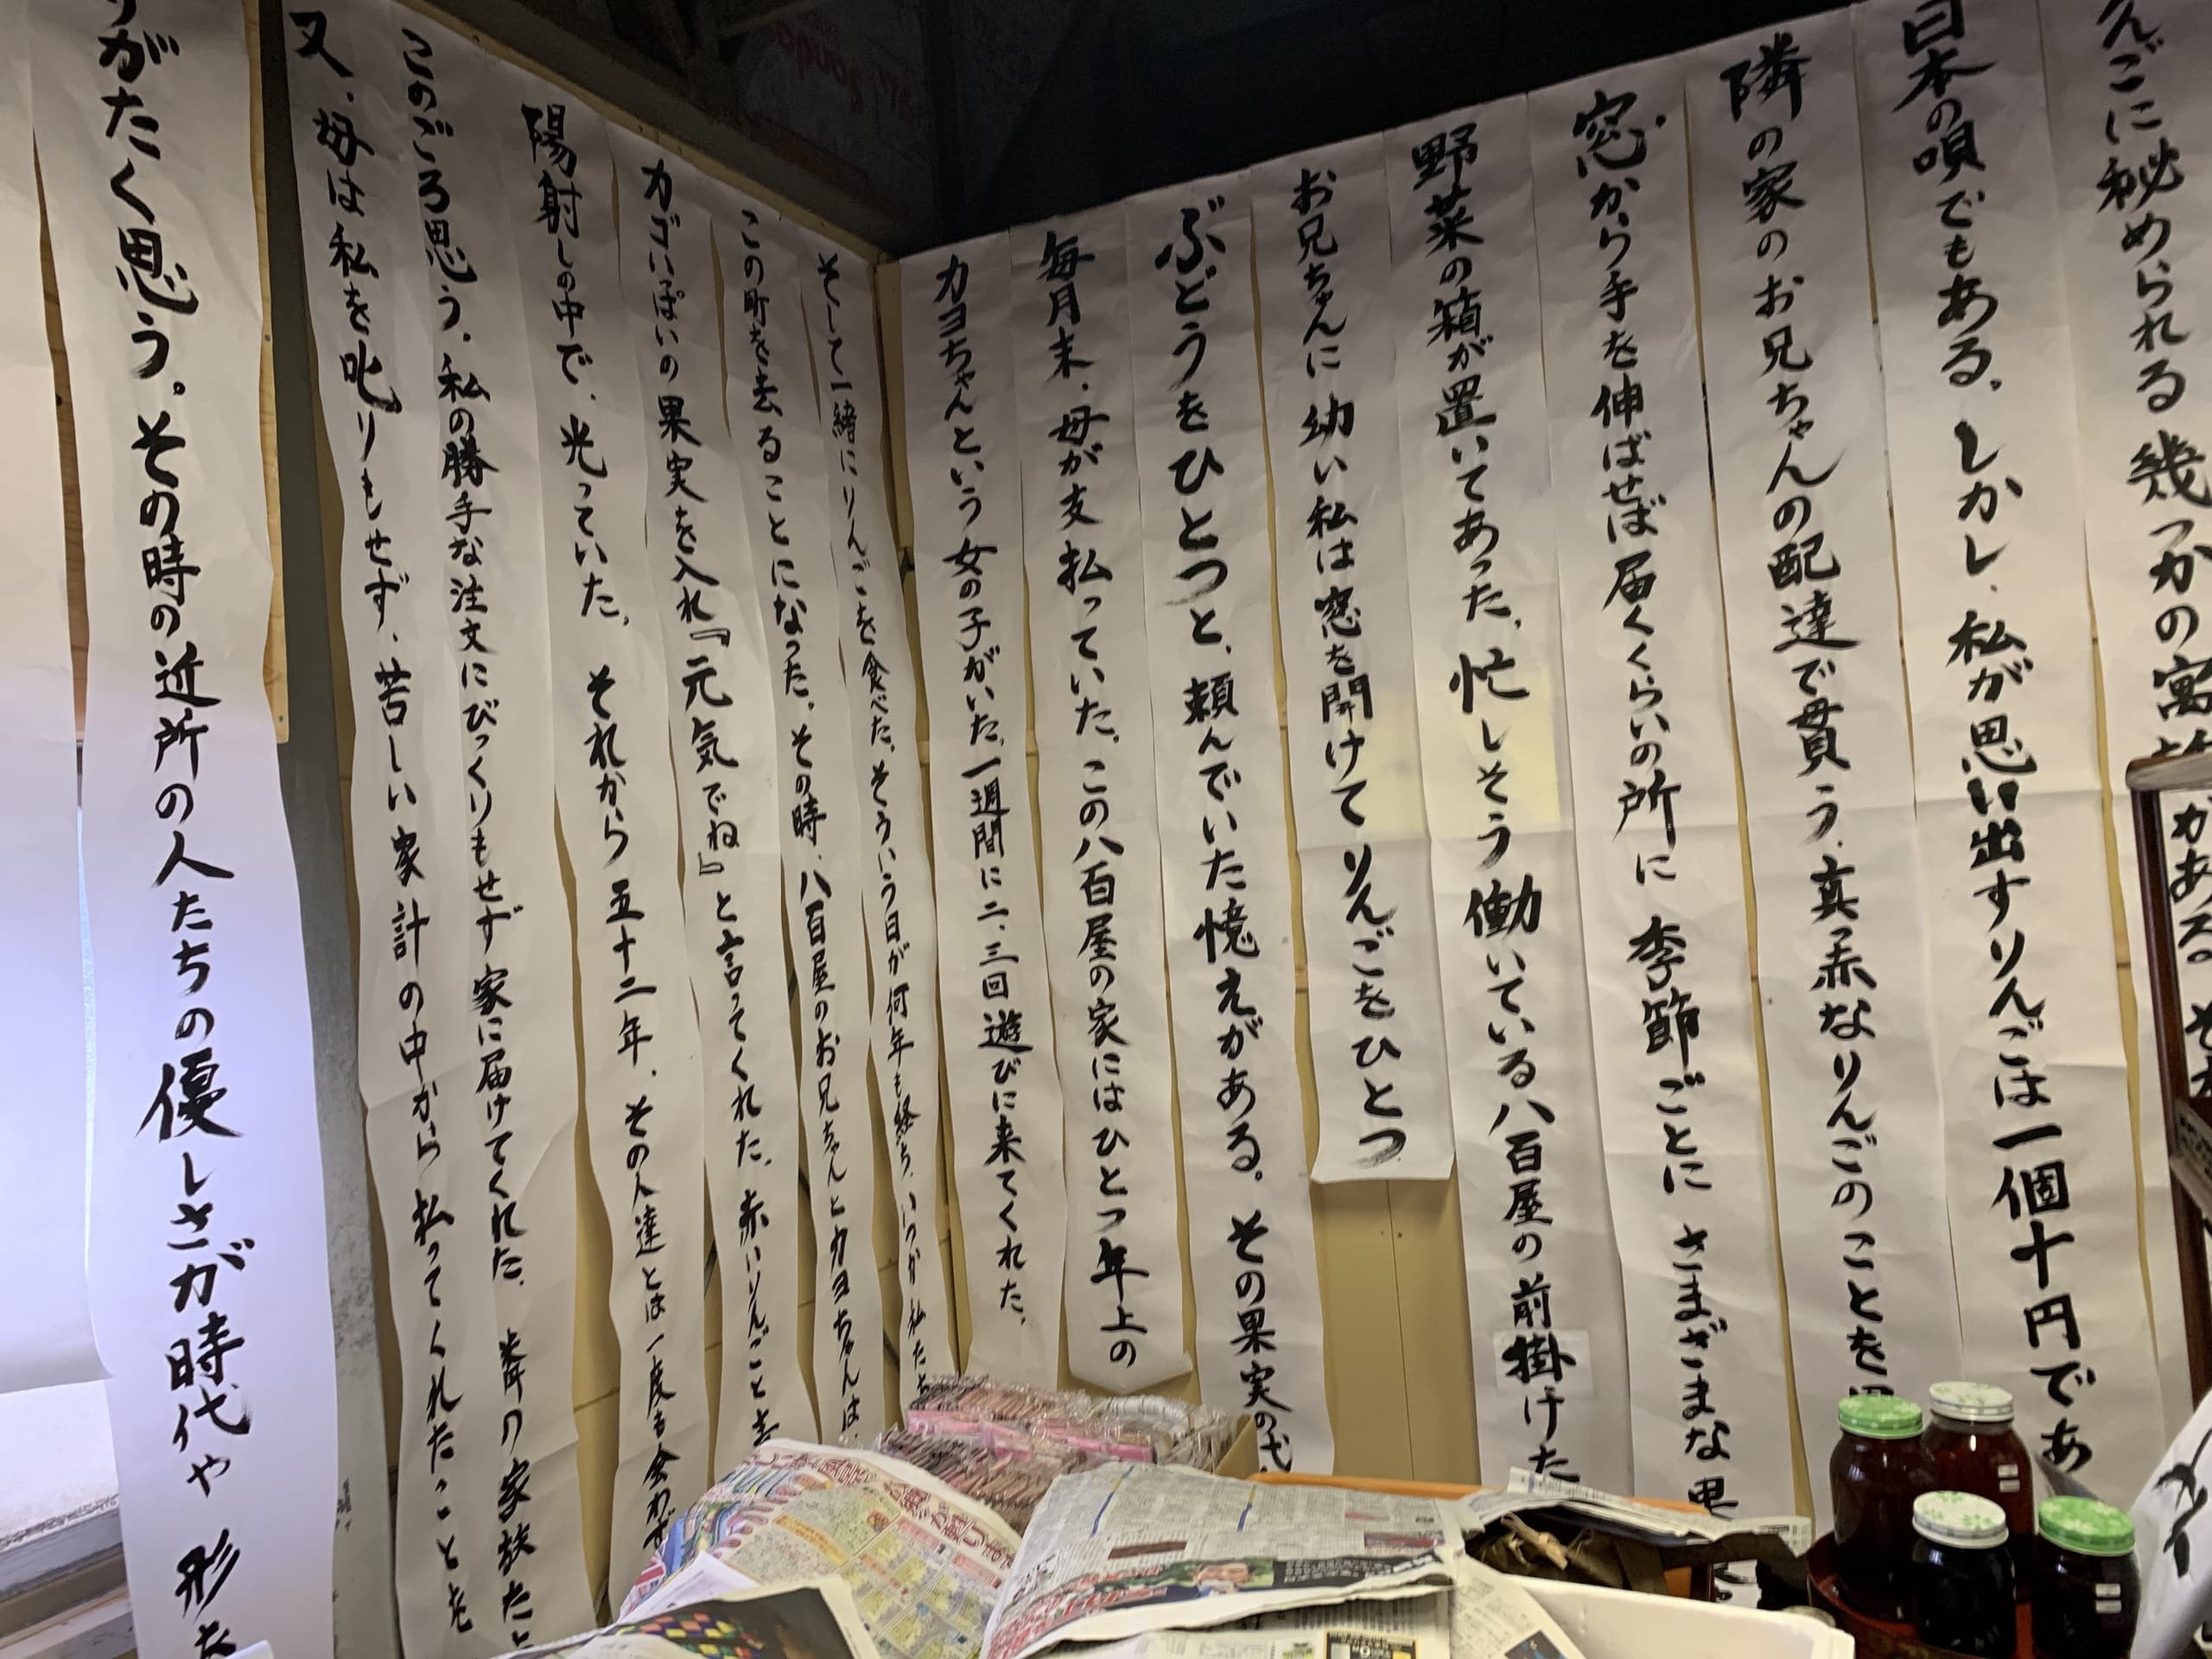 んごに秘められる幾つかの寓
がある。それ
日本の唄でもある。しかし、私が思い出すりんごは一個十円であ
隣の家のお兄ちゃんの配達で貰う、真赤なりんごのことを
窓から手を伸ばせば届くくらいの所に季節ごとにさまざまな果
野菜の箱が置いてあった。忙しそう働いている八百屋の前掛けた
お兄ちゃんに幼い私は窓を開けてりんごをひとつ
ぶどうをひとつと、頼んでいた憶えがある。その果実の代
毎月末、母が支払っていた。この八百屋の家にはひとつ年上の
カヨちゃんという女の子がいた。一週間に二、三回遊びに来てくれた。
そして一緒にりんごを食べた。そういう日が何年も経ち、いつか私たち
この町を去ることになった。その時、八百屋のお兄ちゃんとカヨちゃんは、
カゴいっぱいの果実を入れ『元気でね』と言ってくれた。赤いりんごと
陽射しの中で、光っていた。それから五十二年、その人達とは一度も会わず
このごろ思う。私の勝手な注文にびっくりもせず家に届けてくれた。隣の家族たち
又、母は私を叱りもせず、苦しい家計の中から払ってくれたことも
りがたく思う。その時の近所の人たちの優しさが時代や形を